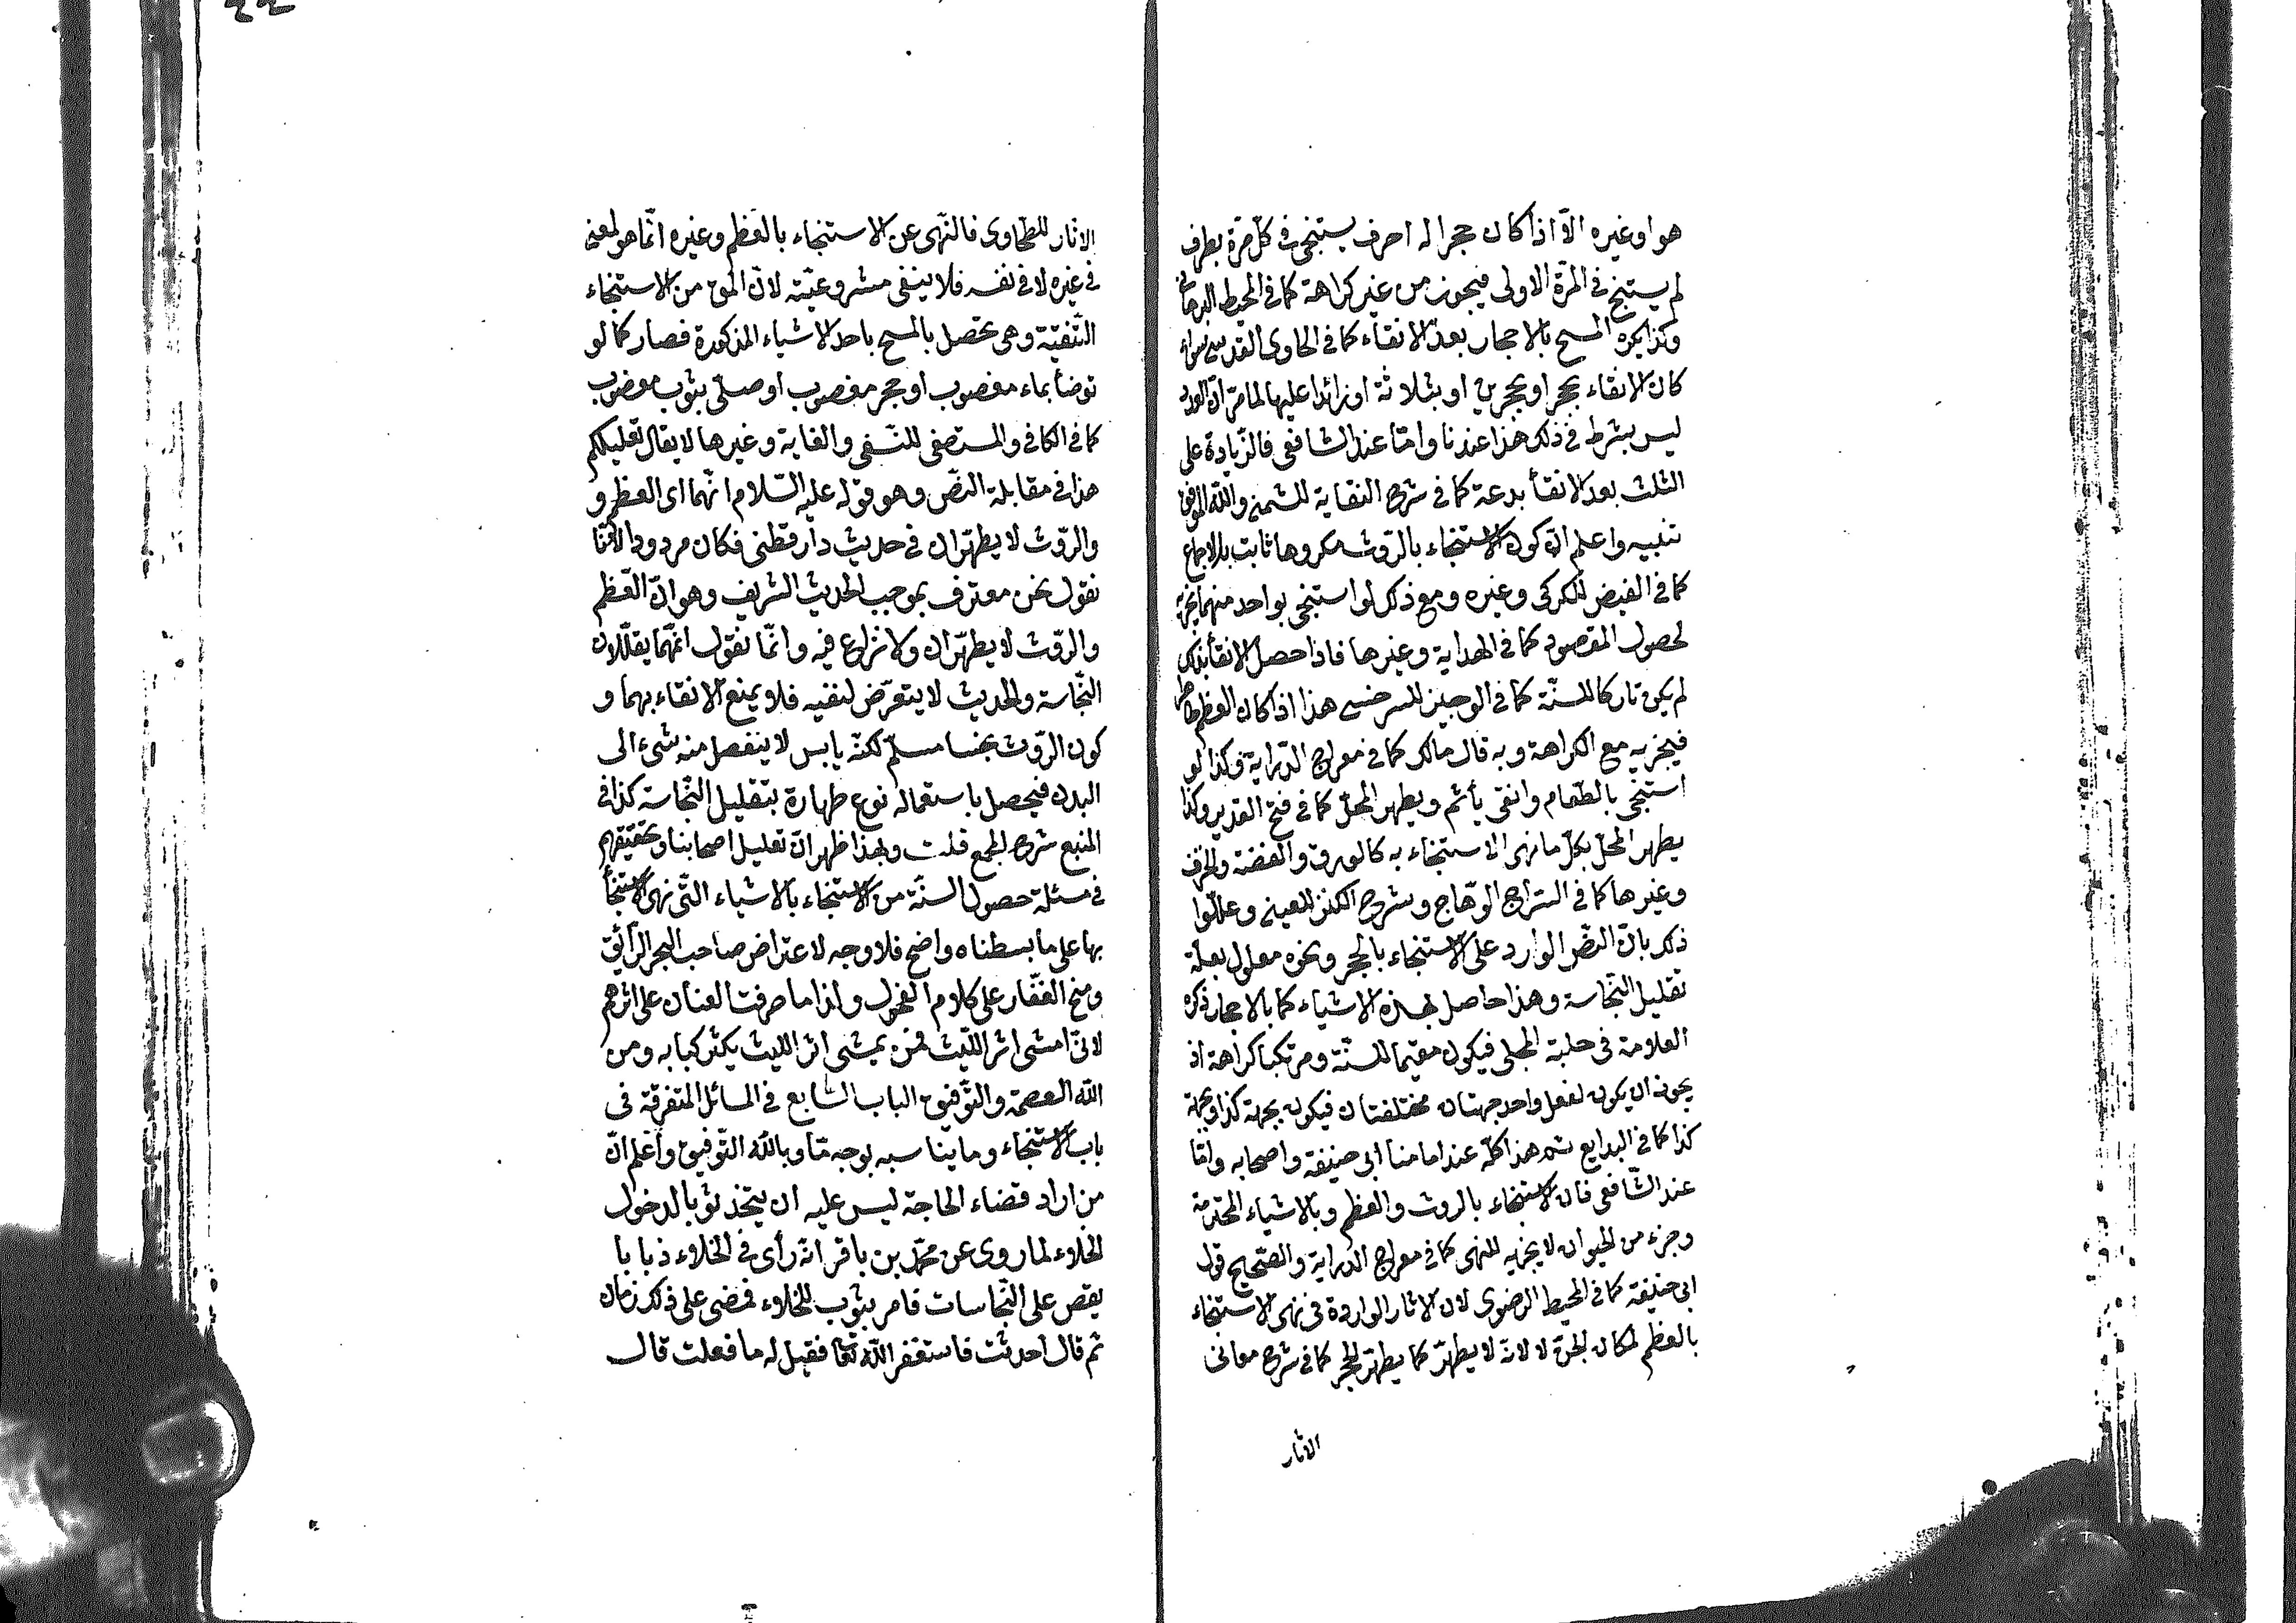 هو او غيره الّا اذا كان حجرا له احرف يستنجى فى كلّ مرّة بطرف
لم يستنج فى المرّة الاولى فيجوز من غير كراهة كما فى المحيط البرهانى
وكذا يكره المسح بالاحجار بعد الانقاء كما فى الحاوى القدسى سواء
كان الانقاء بحجر او بحجرين او بثلاثة او زائدا عليها لما مرّ انّ العدد
ليس بشرط فى ذلك هذا عندنا وامّا عند الشافعى فالزّيادة على
الثلث بعد الانقأ بدعة كما فى شرح النقاية للشمنى والله الموفق
تنبيه واعلم انّ كون الاستنجاء بالرّوث مكروها ثابت بالاجماع
كما فى الفيض للكركى وغيره ومع ذلك لو استنجى بواحد منهما يجزيه
لحصول المقصود كما فى الهداية وغيرها فاذا حصل الانقأ بذلك
لم يكن تاركا للسنّة كما فى الوجيز للسرخسى هذا اذا كان العظم طاهرا
فيجزيه مع الكراهة وبه قال مالك كما فى معراج الدّراية وكذا لو
استنجى بالطّعام وانقى يأثم ويطهر المحلّ كما فى فتح القدير وكذا
يطهر المحلّ بكلّ ما نهى الاستنجاء به كالورق والفضة والخزف
وغيرها كما فى السّراج الوهّاج وشرح الكنز للعينى وعلّلوا
ذلك بانّ النصّ الوارد على الاستنجاء بالحجر ونحوه معلول بعلّة
تقليل النّجاسة وهذا حاصل بهذه الاشياء كما بالاحجار ذكره
العلامة فى حلبة المجلى فيكون مقيما للسنّة ومرتكبا كراهة اذ
يجوز ان يكون لفعل واحد جهتان مختلفتان فيكون بجهة كذا وبجهة
كذا كما فى البدايع ثم هذا كلّه عند امامنا ابى حنيفة واصحابه وامّا
عند الشّافعى فان الاستنجاء بالروث والعظم وبالاشياء المحترمة
وجزء من الحيوان لا يجزيه للنهى كما فى معراج الدراية والصّحيح قول
ابى حنيفة كما فى المحيط الرضوى لان الاثار الواردة فى نهى الاستنجاء
بالعظم لمكان الجنّ لا لانّه لا يطهّر كما يطهّر الحجر كما فى شرح معانى
الاثار
الاثار للطحاوى فالنّهى عن الاستنجاء بالعظم وغيره انّما هو لمعنى
فى غيره لا فى نفسه فلا ينفى مشروعيّته لانّ المق من الاستنجاء
التّنقيّة وهى تحصل بالمسح باحد الاشياء المذكورة فصار كما لو
توضأ بماء مغصوب او حجر مغصوب او صلّى بثوب مغصوب
كما فى الكافى والمستصفى للنّسفى والغاية وغيرها لا يقال تعليلكم
هذا فى مقابلة النصّ وهو قوله عليه السّلام انّهما اى العظم و
والرّوث لا يطهّران فى حديث دار قطنى فكان مردودا لانّا
نقول نحن معترف بموجب الحديث الشريف وهو انّ العّظم
والرّوث لا يطهّران ولا نزاع فيه وانّما نقول انّهما يقلّلان
النّجاسة والحديث لا يتعرّض لنفيه فلا يمنع الانقاء بهما و
كون الرّوث نجسا مسلّم لكنّه يابس لا ينفصل منه شىء الى
البدن فيحصل باستعماله نوع طهارة بتقليل النّجاسة كذا فى
المنبع شرح المجمع قلت وبهذا ظهر انّ تعليل اصحابنا وتحقيقهم
فى مسئلة حصول السنّة من الاستنجاء بالاشياء التّى نهى الاستنجأ
بها على ما بسطناه واضح فلا وجه لاعتراض صاحب البحر الرّائق
ومنح الغفّار على كلام الفحول ولذا ما صرفت العنان على اثرهم
لانّى امشى اثر اللّيث فمن يمشى اثر الليث يكثر كبابه ومن
الله العصمة والتّوفيق الباب السّابع فى المسائل المتفرقة فى
باب الاستنجاء وما يناسبه بوجه مّا وبالله التّوفيق واعلم انّ
من اراد قضاء الحاجة ليس عليه ان يتخذ ثوبا لدخول
الخلاء لما روى عن محمّد بن باقر انّه رأى فى الخلاء ذبابا
يقص على النّجاسات فامر بثوب للخلاء فمضى على ذلك زمان
ثم قال احدثت فاستغفر الله تعا فقيل له ما فعلت قال